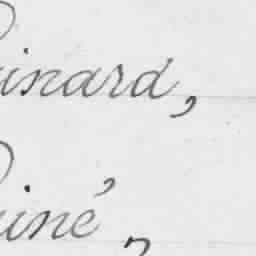 inard,
iné,